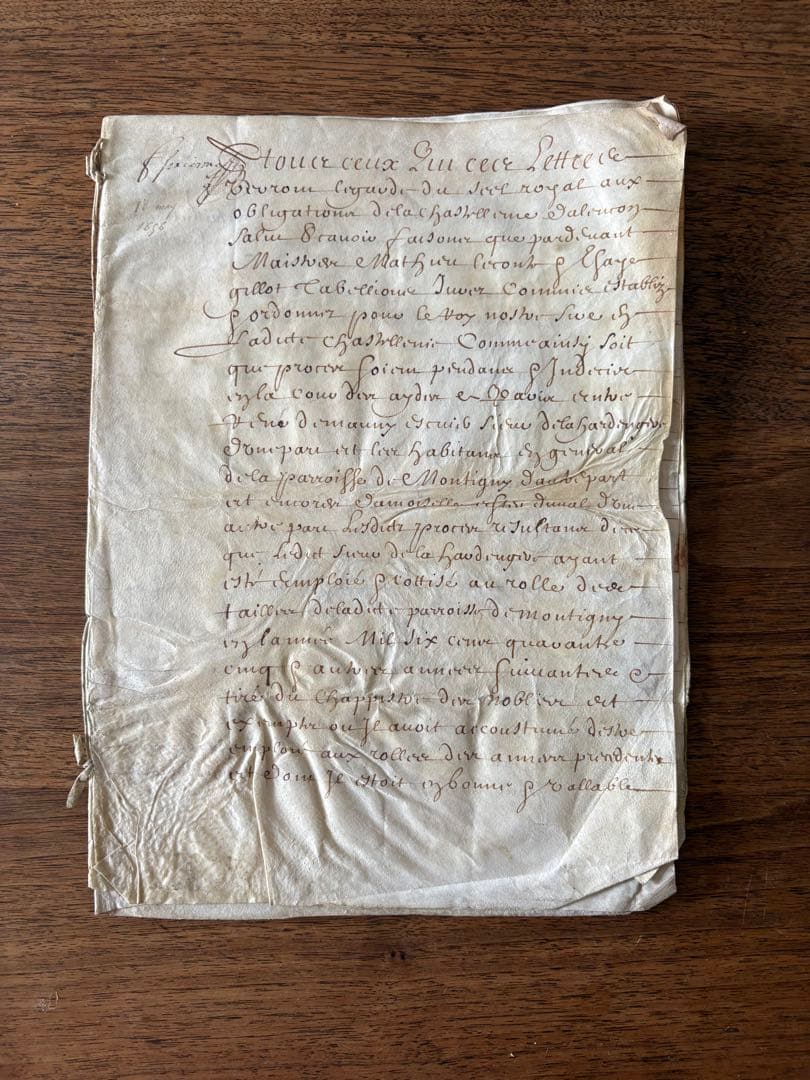 18 may
1658
A tous ceux qui ces lettres
verront le garde du seel royal aux
obligations de la chastellenie dalencon
salut scavoir faisons que pardevant
Maistres Mathieu leconte &
gillot Tabellions Jurez Commis establiz
& ordonnez pour le Roy nostre sire en
Ladite chastellenie Comme ainsy soit
que proces soient pendans & Indecis
en la cour des aydes entre
René demauny escuier sieur de la hardengere
dune part et les habitans en general
de la parroisse de Montigny dautre part
et encores damoiselle duval dune
autre part Lesdicts proces resultans de ce
que Ledict sieur de la hardengere ayant
esté emploié & cottisé au rolle des
tailles de ladicte parroisse de Montigny
en lannée Mil six cens quarante
cinq & autres annees suivantes &
tiré du Chappistre des Nobles et
exempts ou Il avoit accoustumé destre
emploié aux rolles des annees precedentes
et dont Il estoit en bonne & vallable